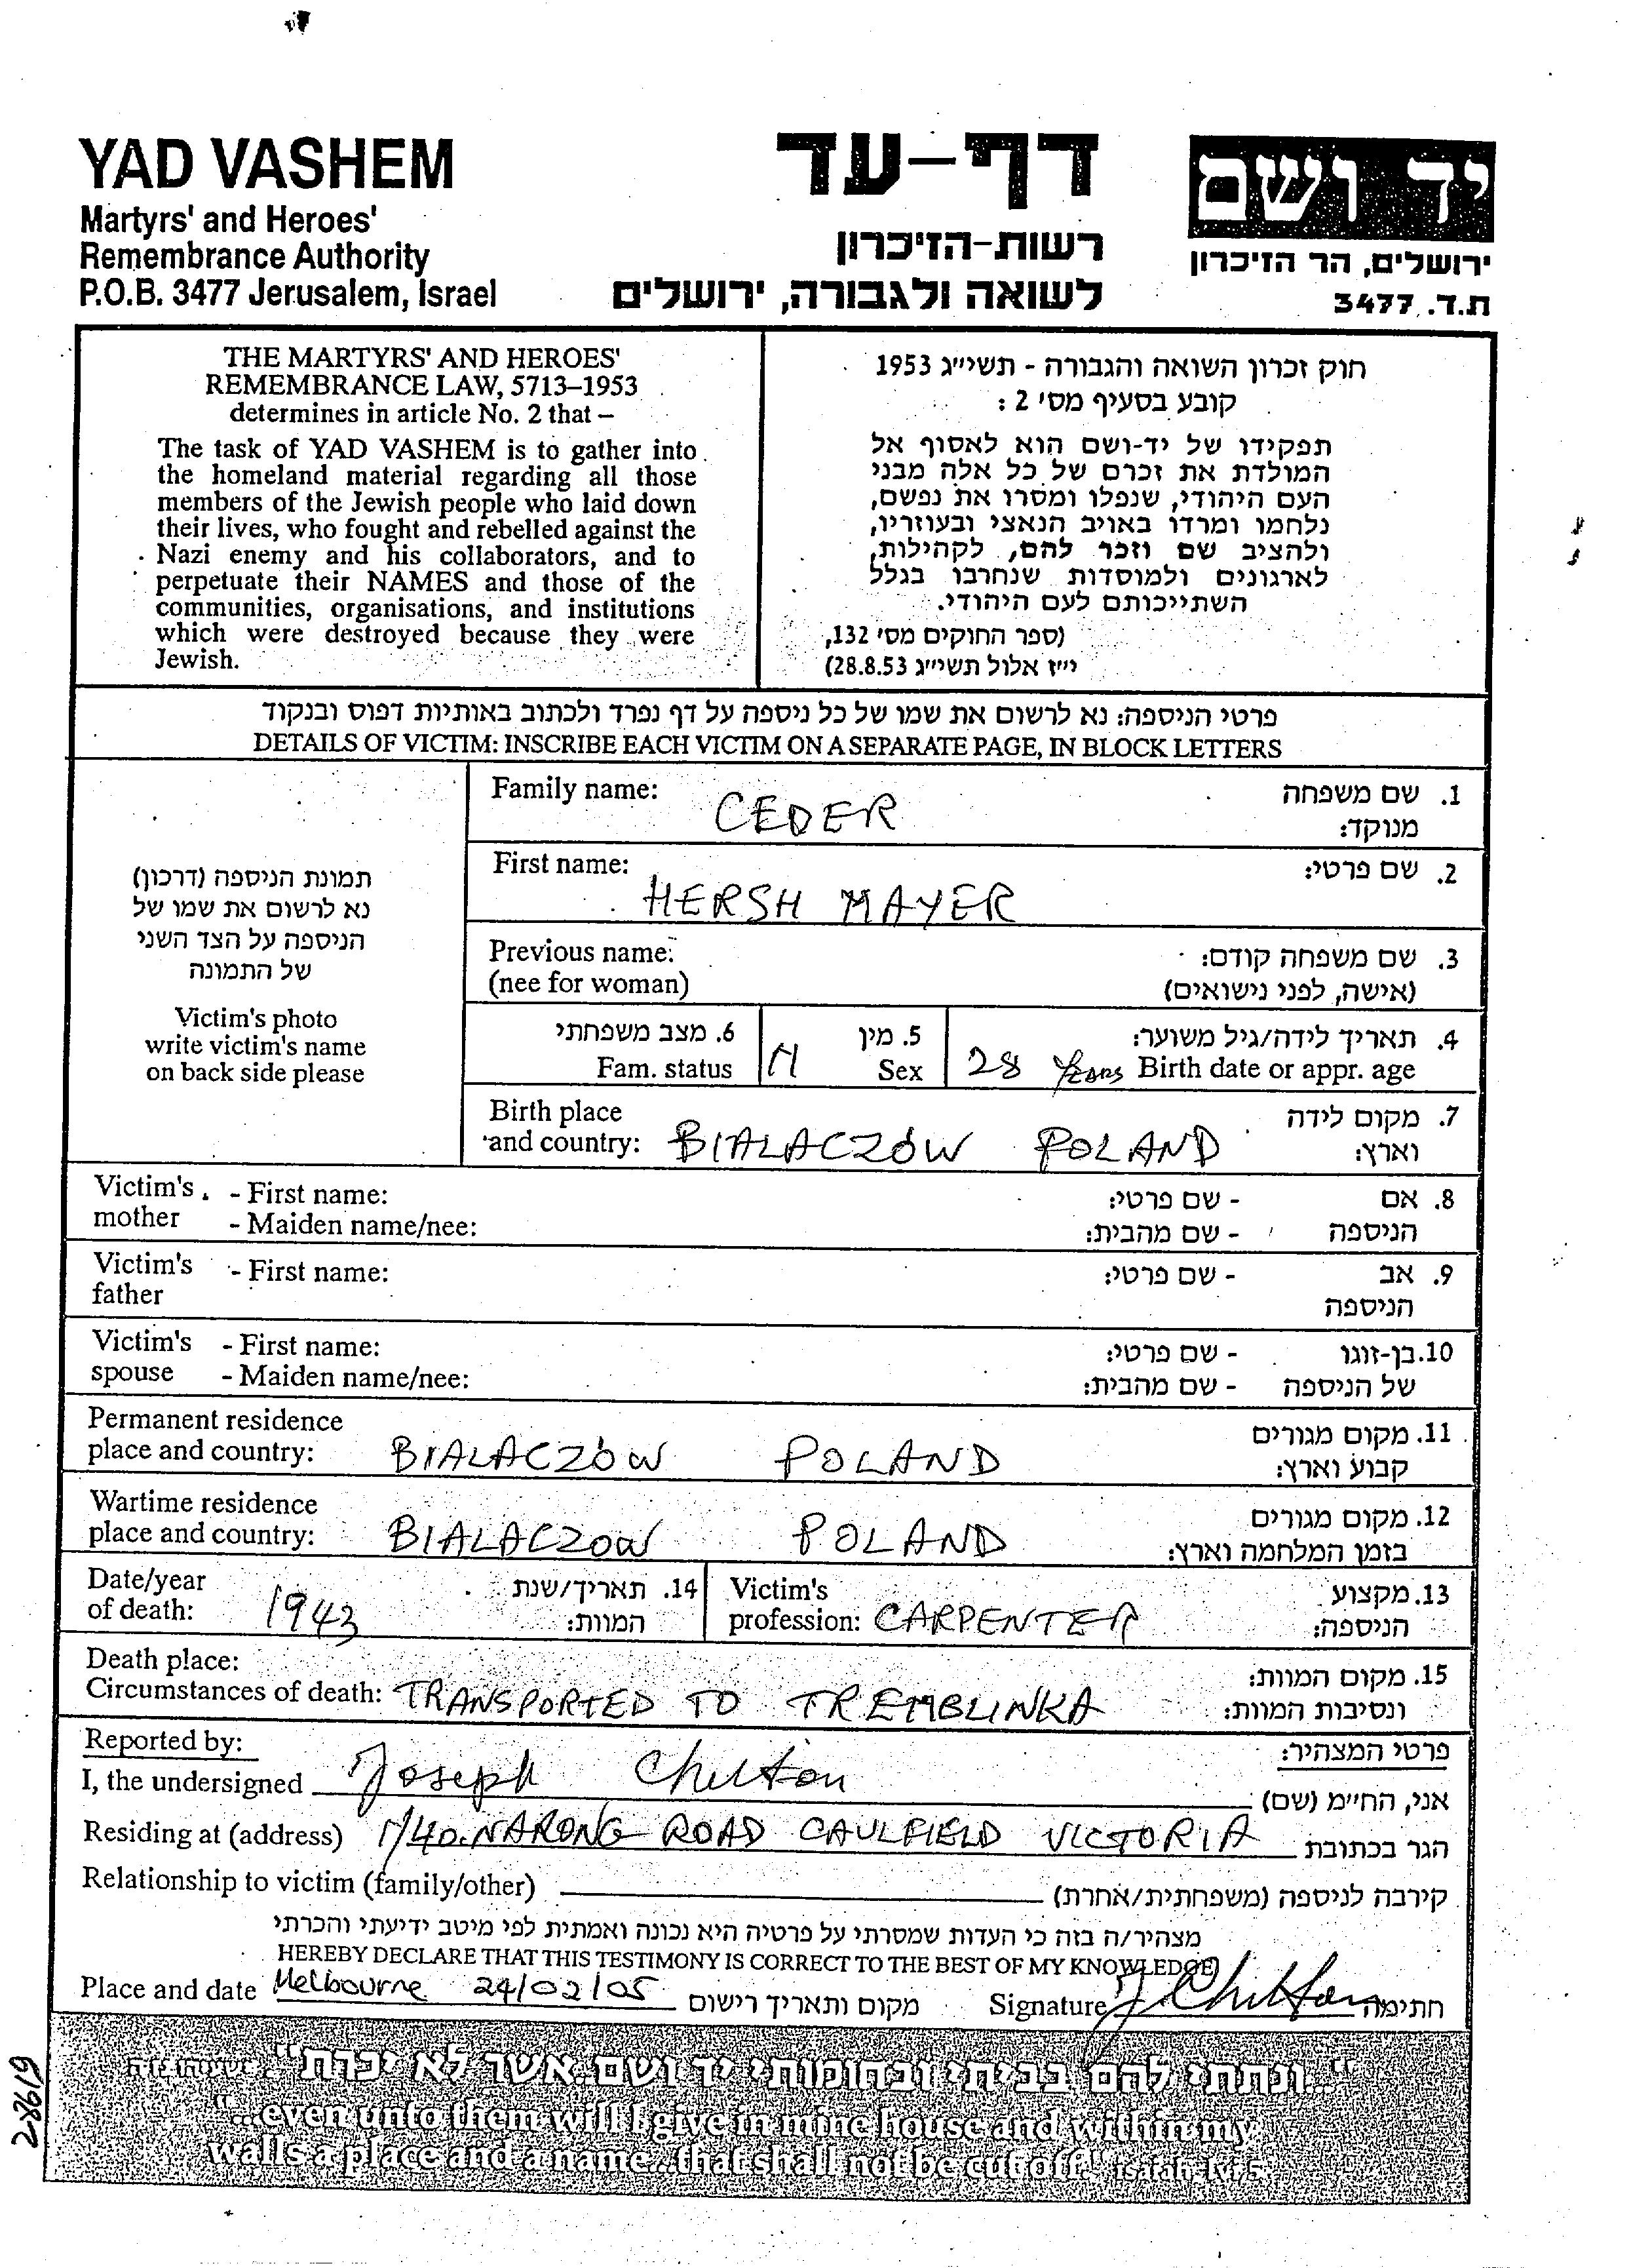 YAD VASHEM
Martyrs' and Heroes'
Remembrance Authority
P.O.B. 3477 Jerusalem, Israel
דף-עד
רשות-הזיכרון
לשואה ולגבורה, ירושלים
יד ושם
ירושלים, הר הזיכרון
ת.ד. 3477
THE MARTYRS' AND HEROES'
REMEMBRANCE LAW, 5713–1953
determines in article No. 2 that –
The task of YAD VASHEM is to gather into
the homeland material regarding all those
members of the Jewish people who laid down
their lives, who fought and rebelled against the
Nazi enemy and his collaborators, and to
perpetuate their NAMES and those of the
communities, organisations, and institutions
which were destroyed because they were
Jewish.
חוק זכרון השואה והגבורה - תשי״ג 1953
קובע בסעיף מס׳ 2 :
תפקידו של יד-ושם הוא לאסוף אל
המולדת את זכרם של כל אלה מבני
העם היהודי, שנפלו ומסרו את נפשם,
נלחמו ומרדו באויב הנאצי ובעוזריו,
ולהציב שם וזכר להם, לקהילות,
לארגונים ולמוסדות שנחרבו בגלל
השתייכותם לעם היהודי.
(ספר החוקים מס׳ 132,
י״ז אלול תשי״ג 28.8.53)
פרטי הניספה: נא לרשום את שמו של כל ניספה על דף נפרד ולכתוב באותיות דפוס ובנקוד
DETAILS OF VICTIM: INSCRIBE EACH VICTIM ON A SEPARATE PAGE, IN BLOCK LETTERS
תמונת הניספה (דרכון)
נא לרשום את שמו של
הניספה על הצד השני
של התמונה
Victim's photo
write victim's name
on back side please
Family name: CEDER 1. שם משפחה
מנוקד:
First name: HERSH MAYER 2. שם פרטי:
Previous name: 3. שם משפחה קודם:
(nee for woman) (אישה, לפני נישואים)
6. מצב משפחתי 5. מין 4. תאריך לידה/גיל משוער:
Fam. status M Sex 28 Years Birth date or appr. age
Birth place 7. מקום לידה
and country: BIALACZÓW POLAND וארץ:
Victim's - First name: - שם פרטי: 8. אם
mother - Maiden name/nee: - שם מהבית: הניספה
Victim's - First name: - שם פרטי: 9. אב
father הניספה
Victim's - First name: - שם פרטי: 10. בן-זוגו
spouse - Maiden name/nee: - שם מהבית: של הניספה
Permanent residence 11. מקום מגורים
place and country: BIALACZÓW POLAND קבוע וארץ:
Wartime residence 12. מקום מגורים
place and country: BIALACZOW POLAND בזמן המלחמה וארץ:
Date/year 14. תאריך/שנת Victim's 13. מקצוע
of death: 1943 המוות: profession: CARPENTER הניספה:
Death place: 15. מקום המוות:
Circumstances of death: TRANSPORTED TO TREMBLINKA ונסיבות המוות:
Reported by: פרטי המצהיר:
I, the undersigned Joseph Chilton אני, החי״מ (שם)
Residing at (address) 1/40 NARONG ROAD CAULFIELD VICTORIA הגר בכתובת
Relationship to victim (family/other) קירבה לניספה (משפחתית/אחרת)
מצהיר/ה בזה כי העדות שמסרתי על פרטיה היא נכונה ואמתית לפי מיטב ידיעתי והכרתי
HEREBY DECLARE THAT THIS TESTIMONY IS CORRECT TO THE BEST OF MY KNOWLEDGE
Place and date Melbourne 24/02/05 מקום ותאריך רישום Signature J Chilton חתימה
"...ונתתי להם בביתי ובחומותי יד ושם...אשר לא יכרת" ישעיהו נו ה
"...even unto them will I give in mine house and within my
walls a place and a name...that shall not be cut off." Isaiah, lvi, 5
28619